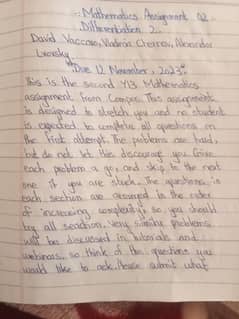 Mathematics Assignment 02
Differentiation 2.
David Vaccaro, Vladimir Chernov, Alexander
Lvovsky
Due 12 November, 2023
This is the second Y13 Mathematics
assignment from Compos. This assignments
is designed to stretch you and no student
is expected to complete all questions on
the first attempt. The problems are hard,
but do not let this discourage you. Give
each problem a go, and skip to the next
one if you are stuck. The questions in
each section are arranged in the order
of increasing complexity, so you should
try all section. Very similar problems
will be discussed in tutorials and
webinars, so think of the questions you
would like to ask. Please submit what